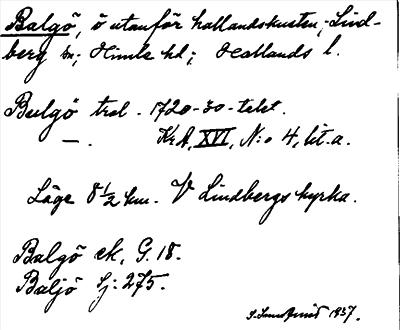 Balgö, ö utanför hallandskusten, Lind-
berg sn; Himle hd; Hallands l.
Bulgö trol. 1720-30-talet.
—. KrA, XVI, N:o 4, lit. a.
Läge 8 1/2 km. V Lindbergs kyrka.
Balgö ek, G. 18.
Baljö Sj: 275.
1937.